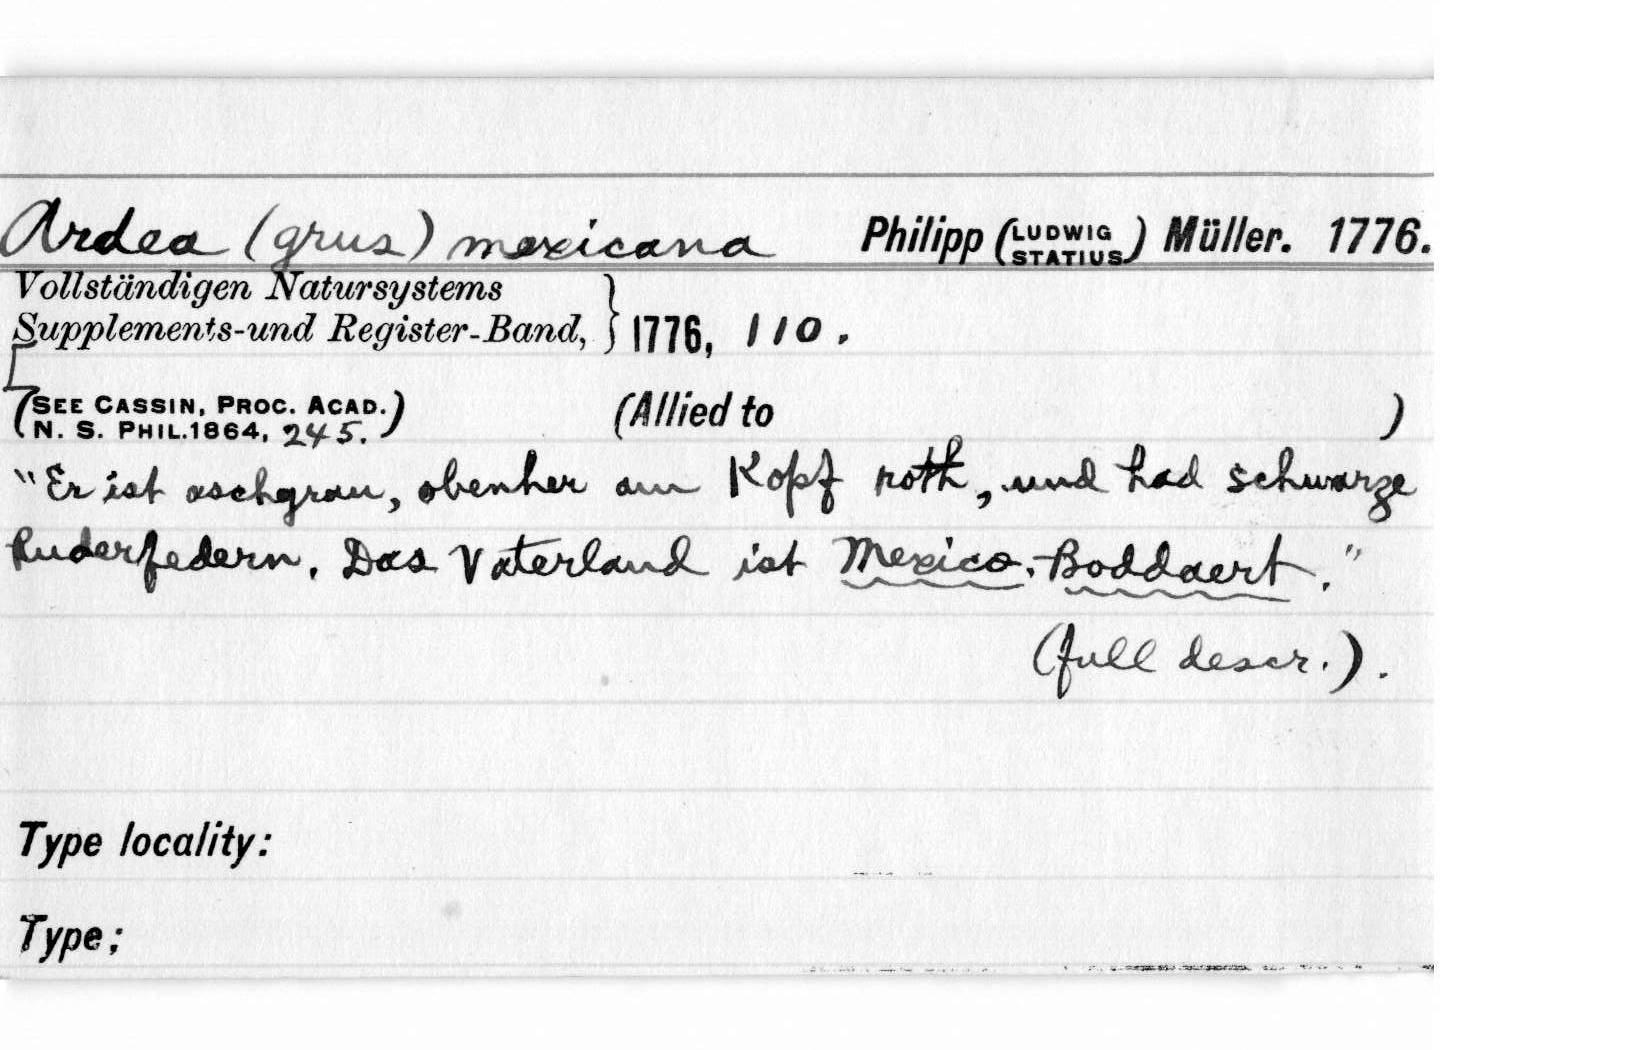 Ardea (grus) mexicana Philipp (LUDWIG STATIUS) Müller. 1776.
Vollständigen Natursystems
Supplements-und Register-Band, } 1776, 110.
(SEE CASSIN, PROC. ACAD.
N. S. PHIL.1864, 245.) (Allied to )
"Er ist aschgrau, obenher am Kopf roth, und had schwarze
Ruderfedern. Das Vaterland ist Mexico. Boddaert."
(full descr.).
Type locality:
Type: